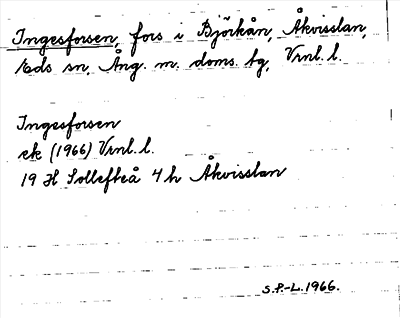 Ingesforsen, fors i Björkån, Åkvisslan,
Eds sn, Ång. m. doms. tg, Vrnl. l.
Ingesforsen
ek (1966) Vrnl. l.
19 H Sollefteå 4 h Åkvisslan
S.P.-L. 1966.